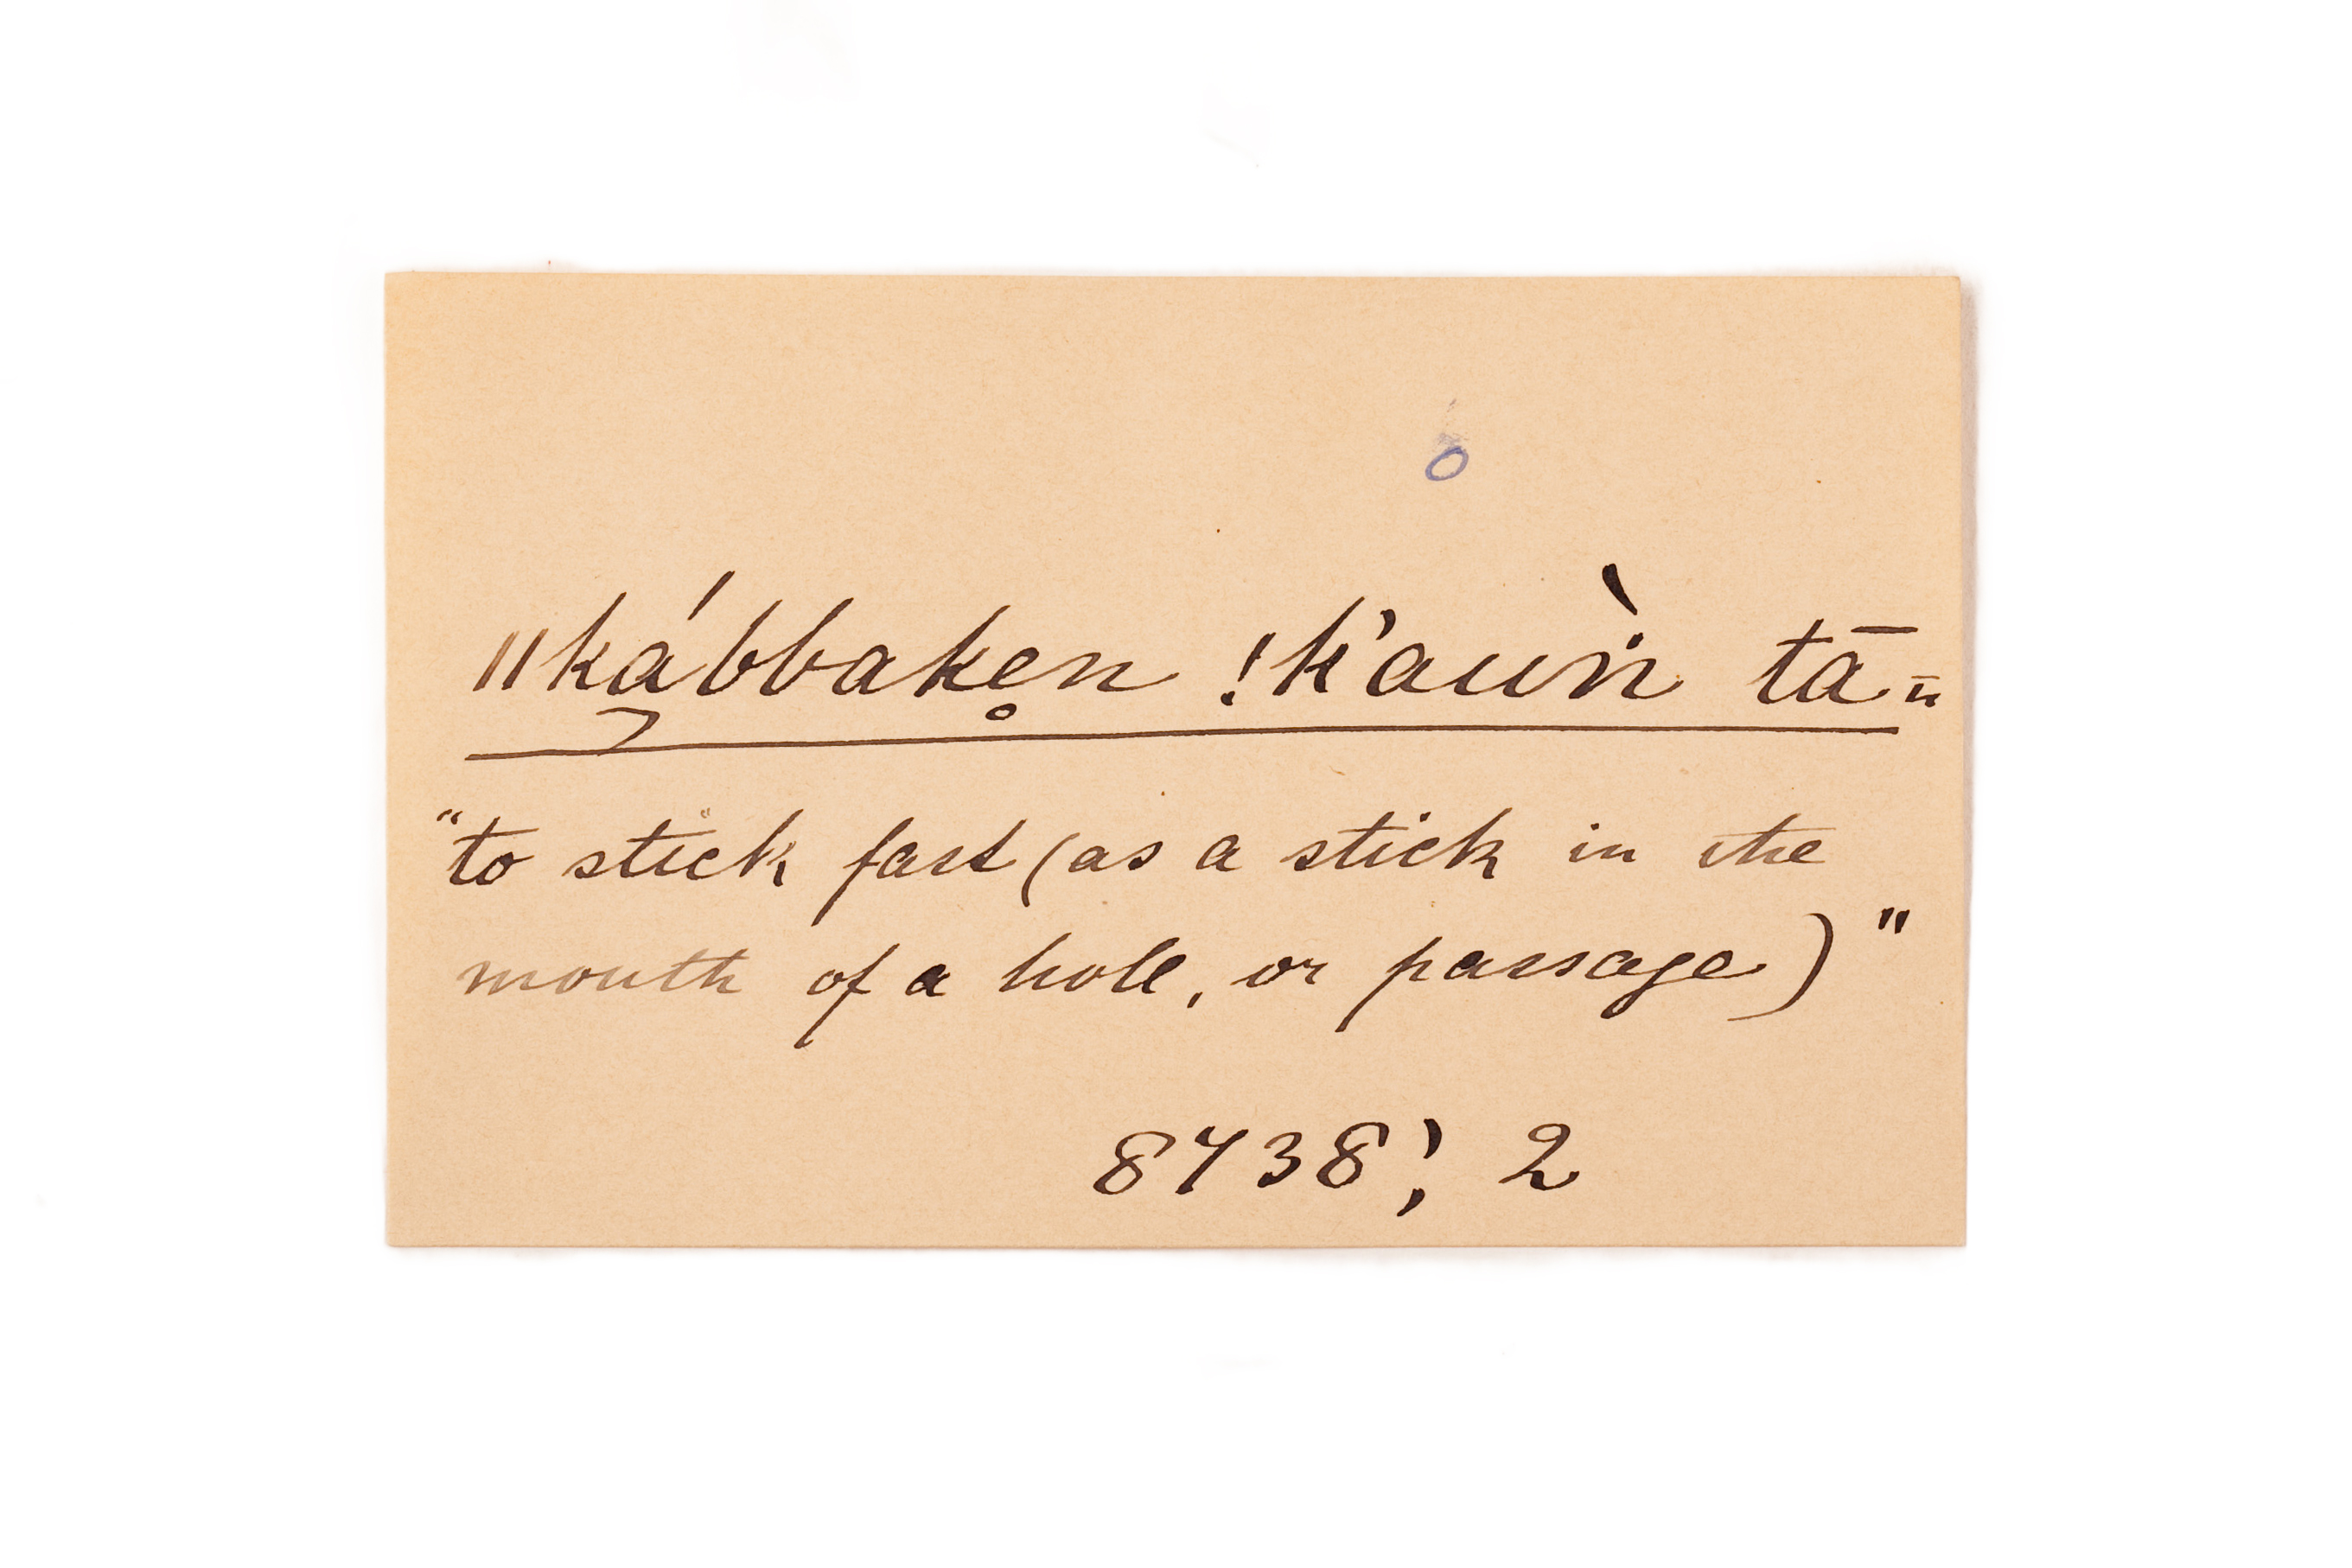 ǁká̱bbake̥n !k'auṅ̀ tā-ä
"to stick fast (as a stick in the
mouth of a hole, or passage)"
8738; 2